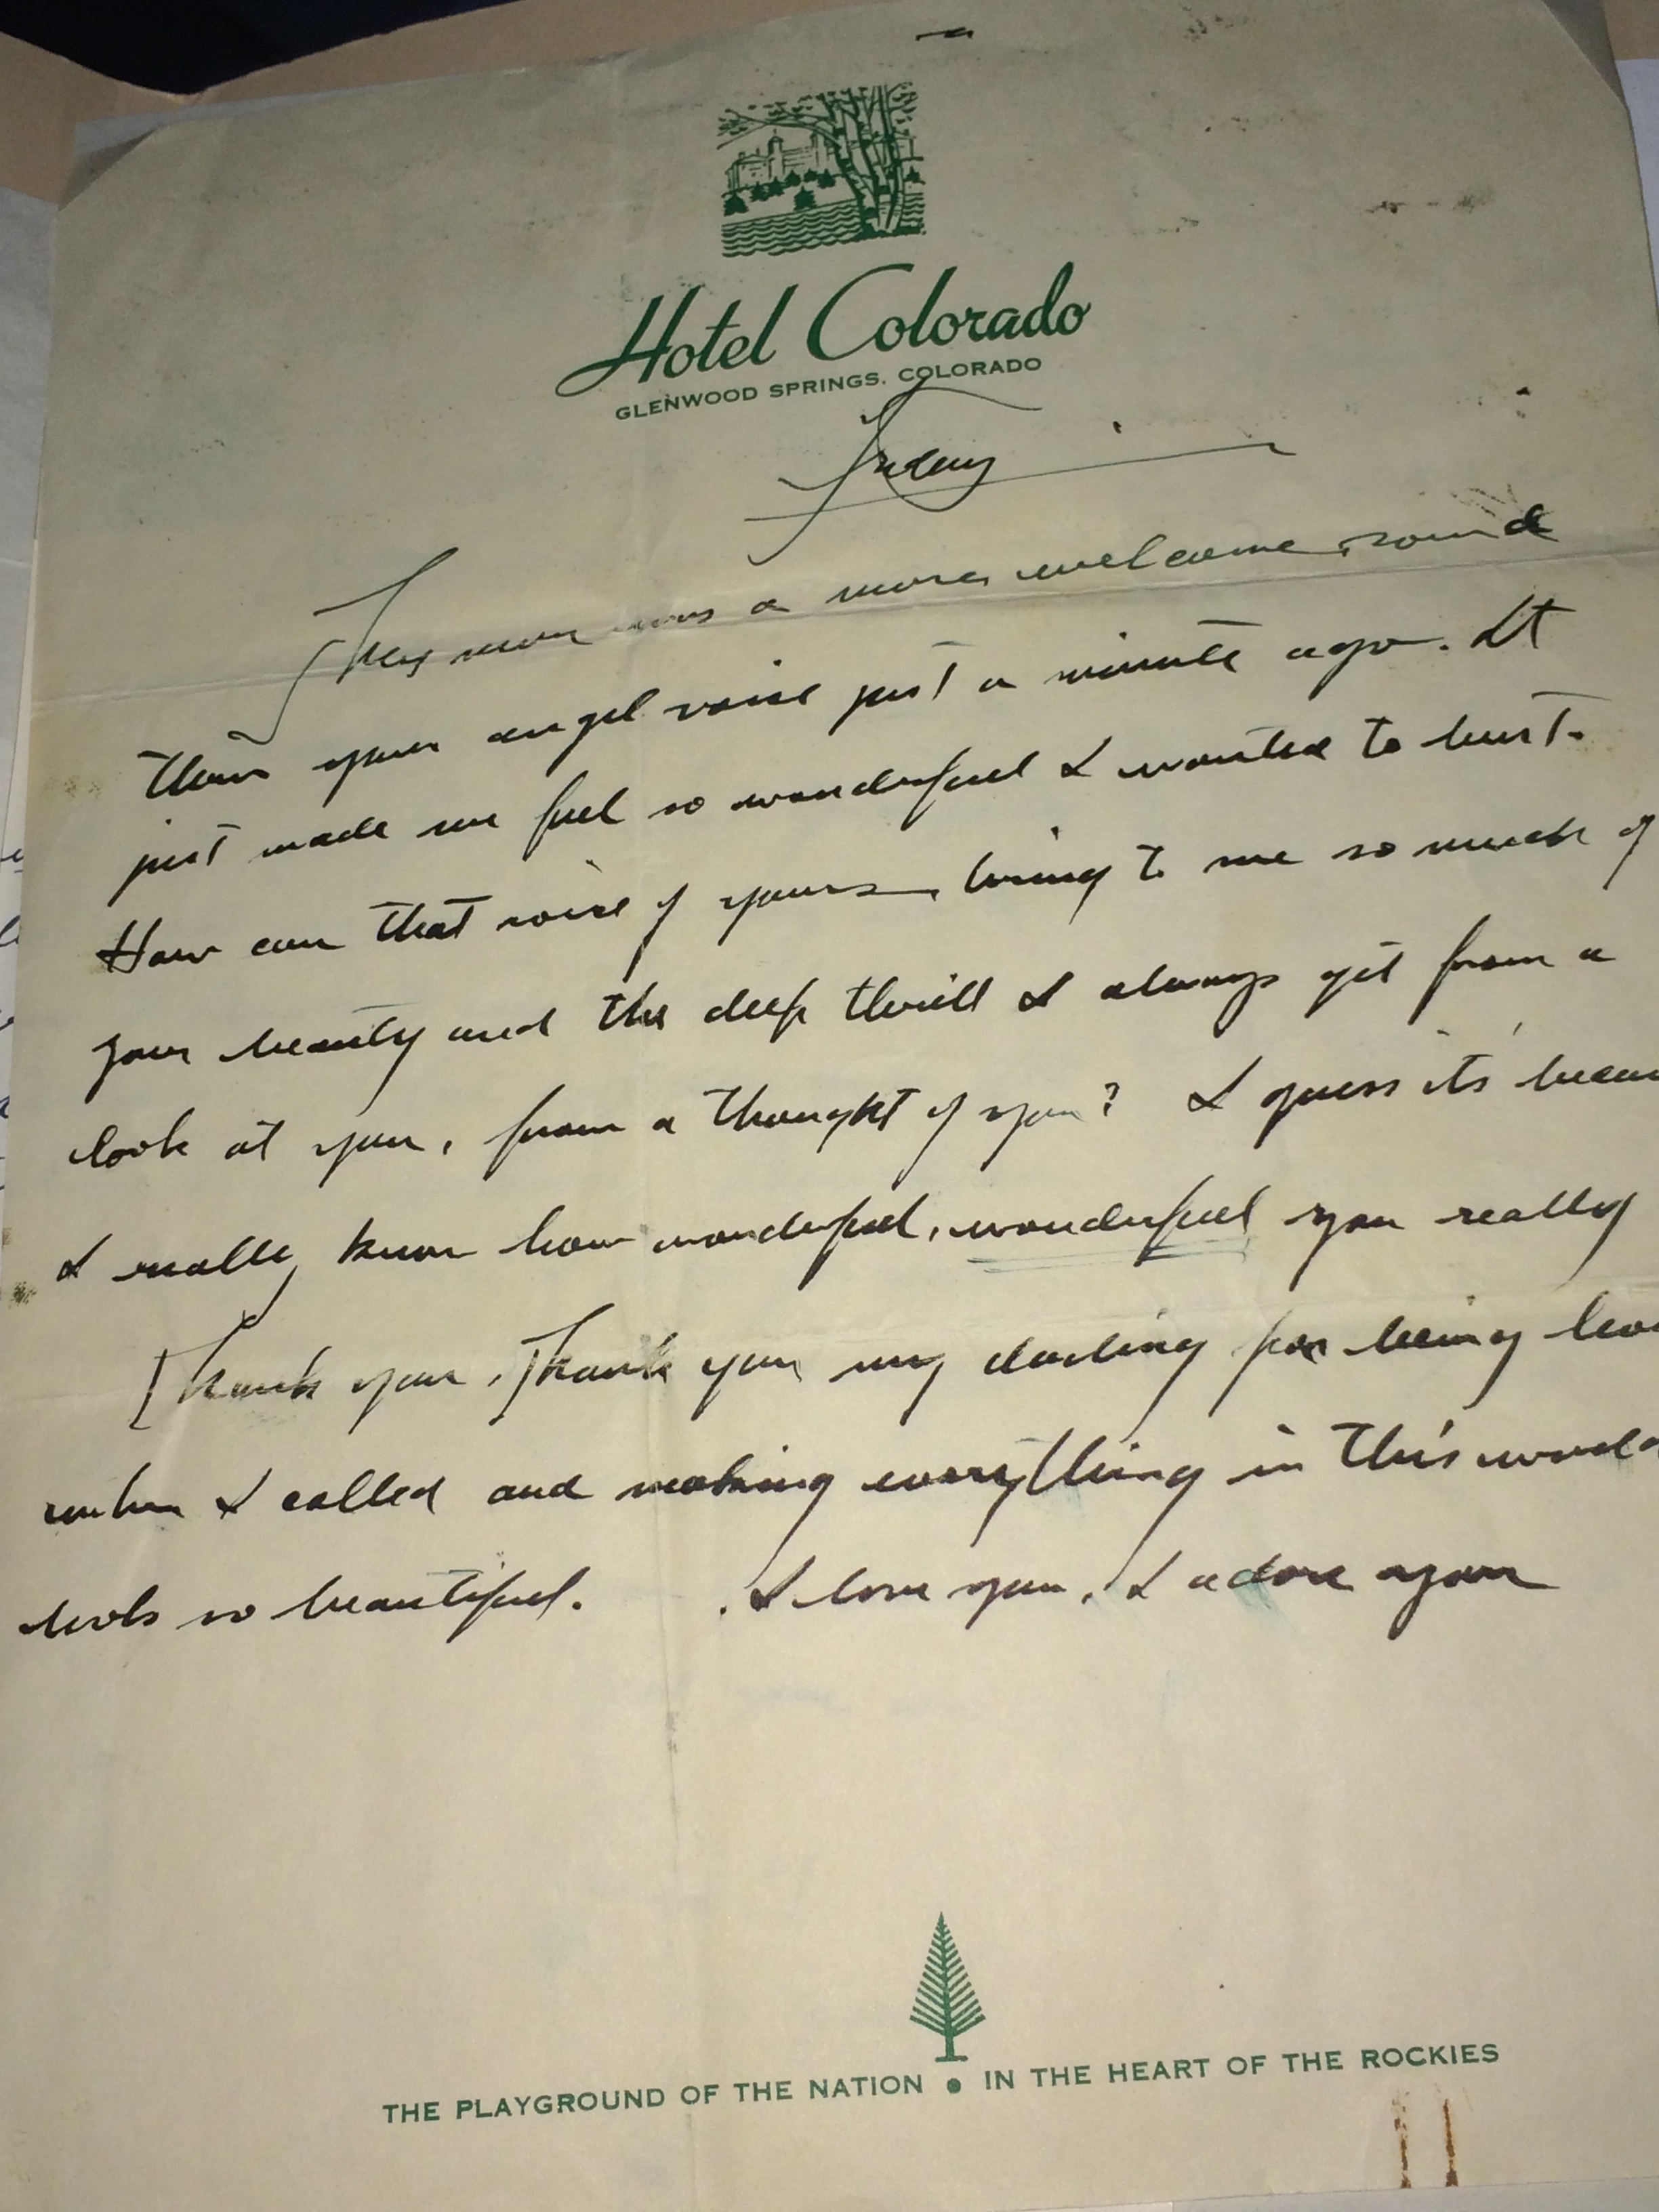 Hotel Colorado
GLENWOOD SPRINGS, COLORADO
Friday
There never was a more welcome sound
than your angel voice just a minute ago. It
just made me feel so wonderful I wanted to burst.
How can that voice of yours, bring to me so much of
your beauty and the deep thrill I always get from a
look at you, from a thought of you? I guess its
I really know how wonderful, wonderful you really
Thank you, Thank you my darling for being
when I called and making everything in this world
look so beautiful. I love you, I adore you
THE PLAYGROUND OF THE NATION • IN THE HEART OF THE ROCKIES